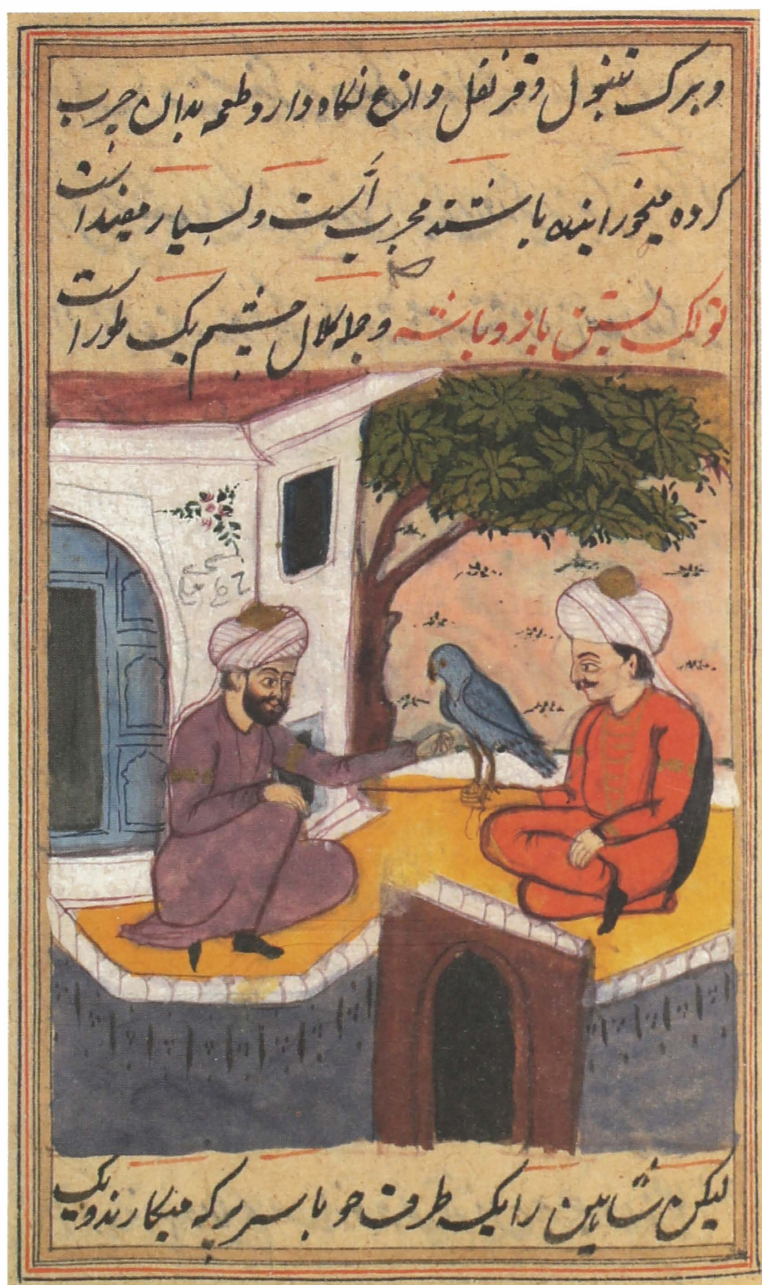 و برک تنبول و قرنفل و ازع نکاه دار و طعمه بدان چرب
کرده میخورانیده باشند مجرب است و بسیار مفید است
تولک بستن باز و باشه و جمله کلال چشم یک طور است
لیکن شاهین را یک طرف جو با سر برکه میکارند و یک